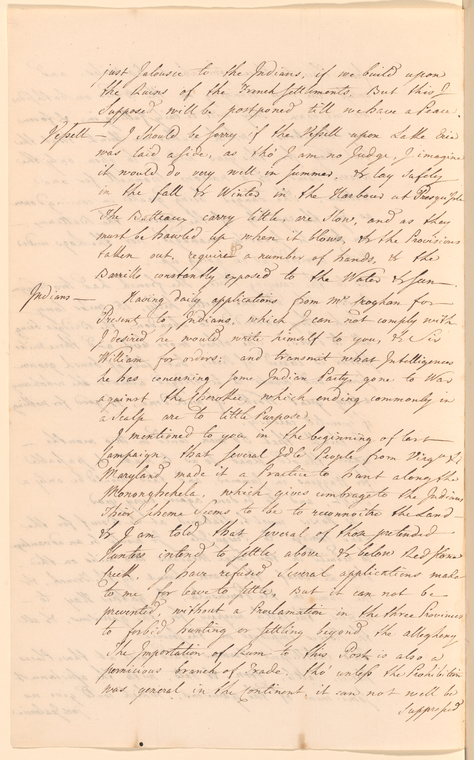 just Jalousie to the Indians, if we build upon
the Ruins of the French settlements. But this I
Suppose will be postponed till we have a Peace.
Vessell — I should be sorry if the Vessell upon Lake Erie
was laid aside, as tho' I am no Judge, I imagine
it would do very well in Summer, & lay Safely
in the fall & Winter in the Harbour at Presqu'Isle
The Batteaux carry little, are slow, and as they
must be hawled up when it blows, & the Provisions
taken out, require a number of hands, & the
Barrills constantly exposed to the Water & Sun —
Indians — Having daily applications from Mr Croghan for
Present to Indians, which I can not comply with
I desired he would write himself to you, & Sir
William for orders: and transmit what Intelligences
he has concerning some Indian Party, gone to War
against the Cherokee, which ending commonly in
a Scalp are to little Purpose.
I mentioned to you in the beginning of last
Campaign, that several Idle People from Virga &
Maryland made it a Practice to hunt along the
Mononghehela, which gives umbrage to the Indians
Their scheme seems to be to reconnoitre the Land —
& I am told that several of those pretended
Hunters intend to settle above & below Red Stone
Creek. I have refused several applications made
to me for leave to settle, But it can not be
prevented without a Proclamation in the three Provinces
to forbid hunting or settling beyond the allegheny
The Importation of Rum to this Post is also a
pernicious branch of Trade, tho' unless the Prohibition
was general in the Continent, it can not well be
Suppress'd